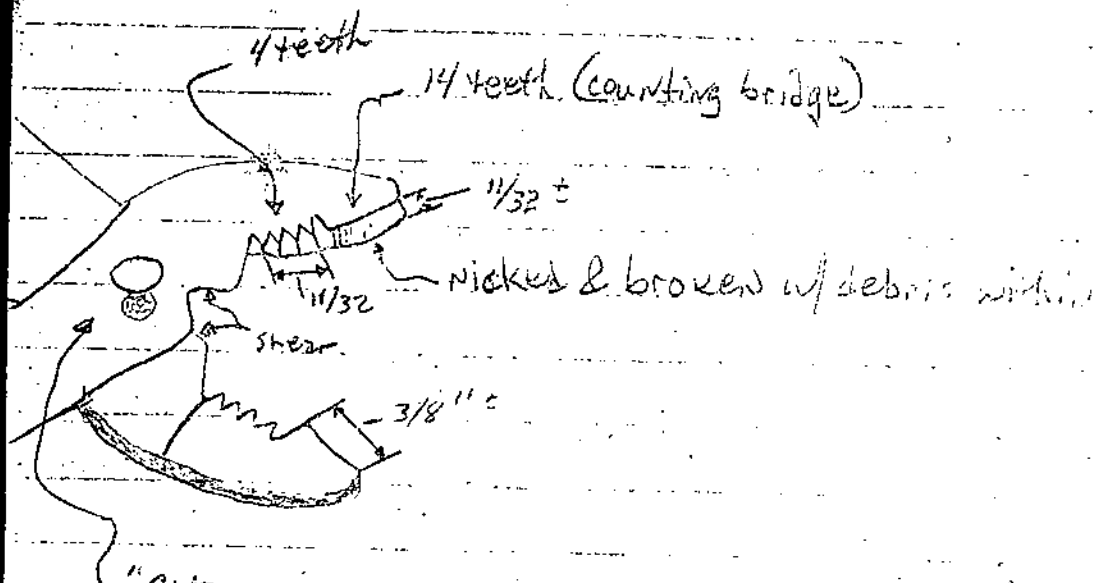 4 teeth
14 teeth (counting bridge)
11/32 ±
Nicked & broken w/ debris within
11/32
shear.
3/8" ±